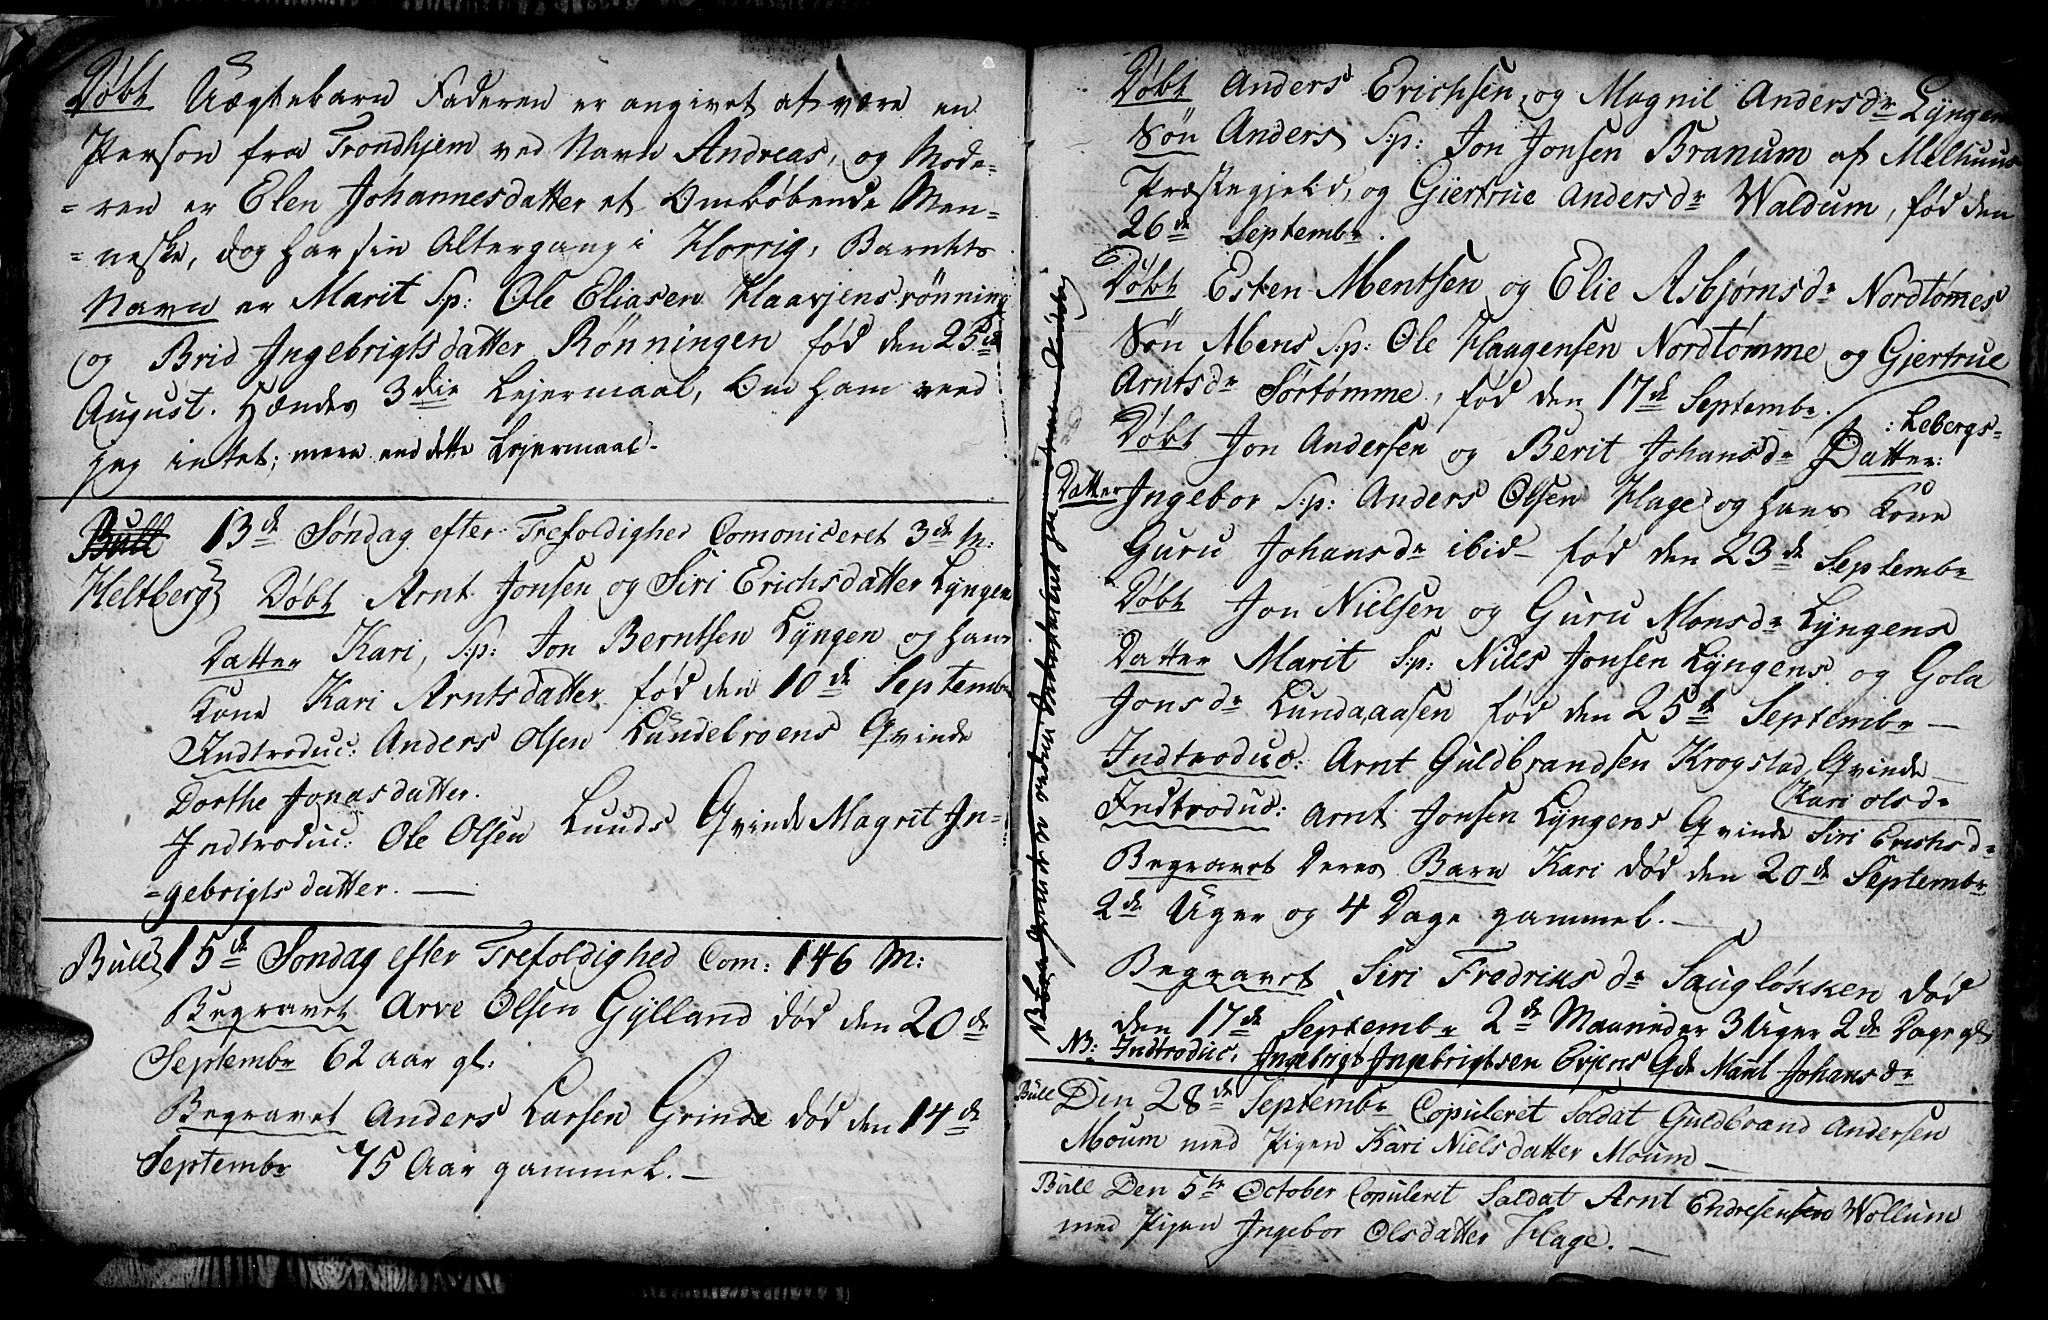 Døbt Uægtebarn Faderen er angivet at være en
Person fra Trondhjem ved Navn Andreas, og Mode-
=ren er Elen Johannesdatter et Omløbende Men-
=neske, dog har sin Altergang i Horrig, Barnets
Navn er Marit S:p: Ole Eliasen Haavjensrönning
og Brid Ingebrigtsdatter Rönningen fød den 25de
August. Hændes 3die Lejermaal, Om ham veed
jeg intet; mere end dette Lejermaal.
Bull 13de Søndag efter Trefoldighed Comoniceret 3de M:
Heltberg Døbt Arnt Jonsen og Siri Erichsdatter Lyngen
Datter Kari, S:p: Jon Berntsen Lyngen og hans
Kone Kari Arntsdatter fød den 10de Septembr
Indtroduc: Anders Olsen Lundebroens Qvinde
Dorthe Jonasdatter.
Indtroduc: Ole Olsen Lunds Qvinde Magrit In-
=gebrigtsdatter. —
Bull 15de Søndag efter Trefoldighed Com: 146 M:
Begravet Arve Olsen Gylland død den 20de
Septembr 62 aar gl:
Begravet Anders Larsen Grinde død den 14de
Septembr 75 Aar gammel. —
Døbt Anders Erichsen og Magnil Andersdr Lyngen
Søn Anders S:p: Jon Jonsen Branum af Melhuus
Præstegjeld, og Gjertrue Andersdr Waldum, fød den
26de Septembr.
Døbt Esten Mentsen og Elie Asbjørnsdr Nordtømes
Søn Mens S:p: Ole Haagensen Nordtømme og Gjertrue
Arntsdr Sørtømme, fød den 17de Septembr.
Døbt Jon Andersen og Berit Johansdr Datter: : Lebergs-
Datter Ingebor S:p: Anders Olsen Hage og hans Kone
Guru Johansdr ibid— fød den 23de Septembr
Døbt Jon Nielsen og Guru Monsdr Lyngens
Datter Marit S:p: Niels Jonsen Lyngens og Gola
Jonsdr Lundaaasen fød den 25de Septembr —
Indtroduc: Arnt Guldbrandsen Krogstad Qvinde
Kari Olsdr
Indtroduc: Arnt Jonsen Lyngens Qvinde Siri Erichsdr
Begravet Deres Barn Kari død den 20de Septembr
2de Uger og 4 Dage gammel. —
Begravet Siri Fredriksdr Saugløkken død
den 17de Septembr 2de Maaneder 3 Uger 2de Dage gl
NB: Indtroduc, Ingebrigt Ingebrigtsen Evjens Qde Marit Johansdr
Bull Den 28de Septembr Copuleret Soldat Guldbrand Andersen
Moum med Pigen Kari Nielsdatter Moum —
Bull Den 5te October Copuleret Soldat Arnt Endresen Wollum
med Pigen Ingebor Olsdatter Hage. —